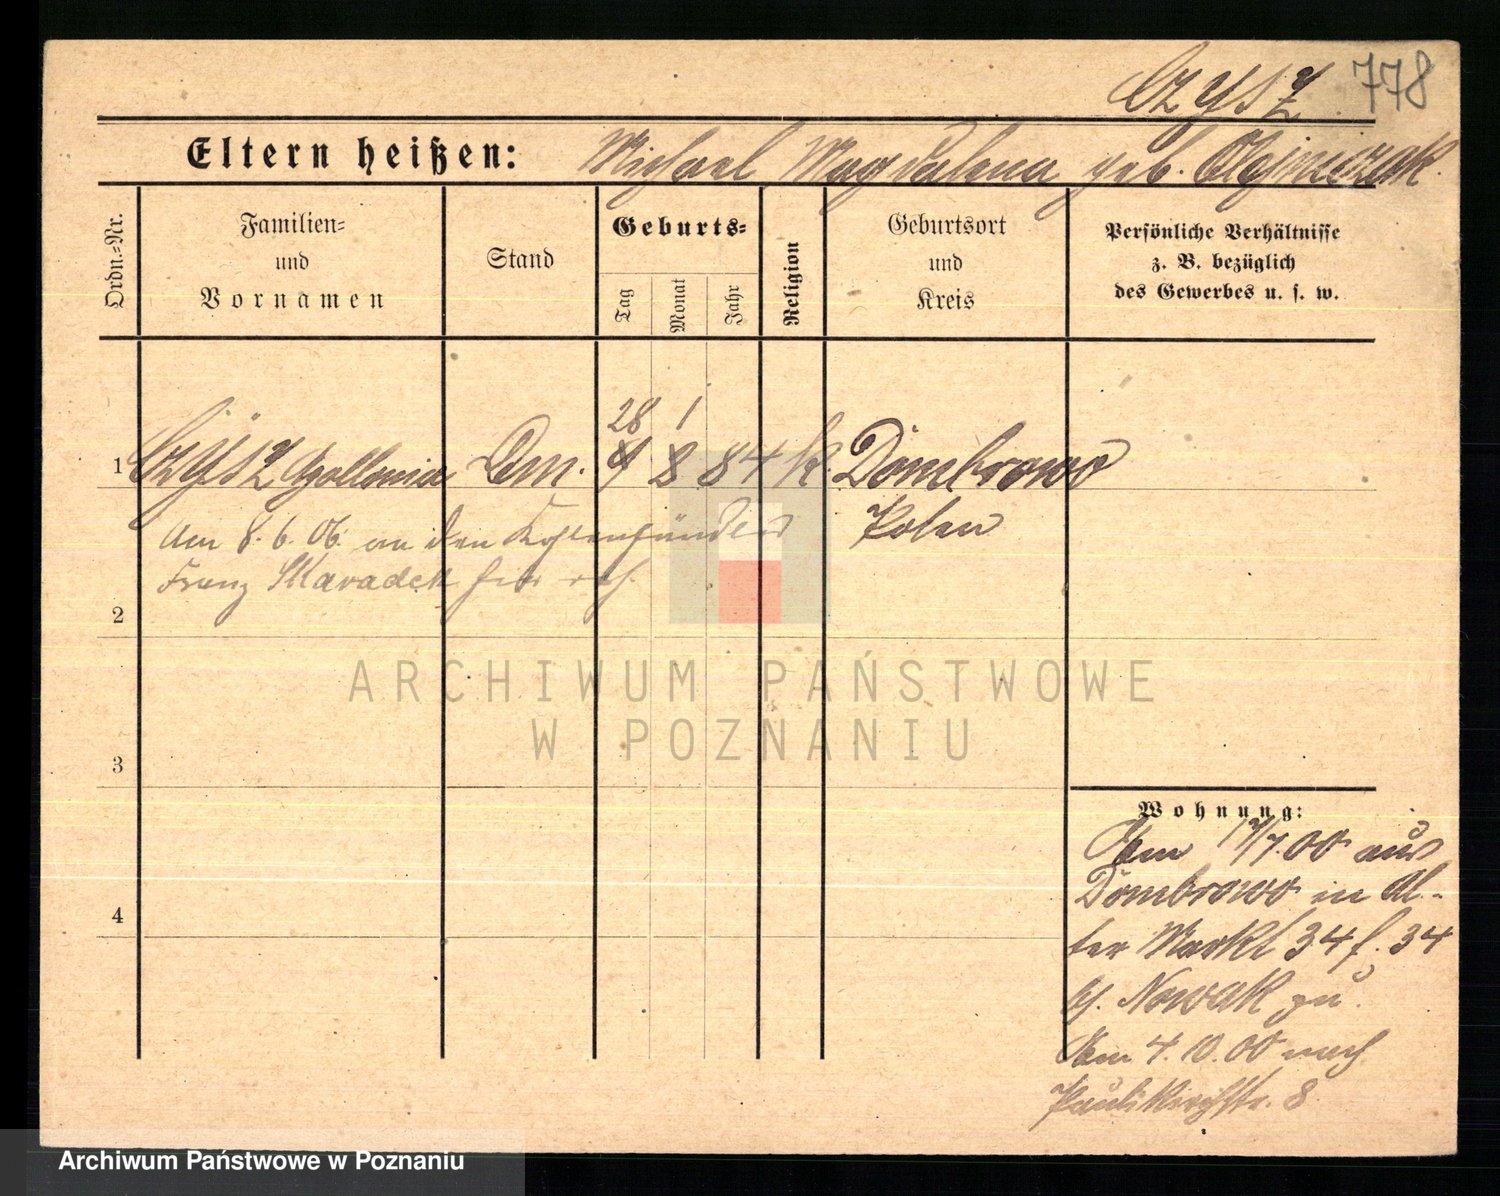 Czysz 778
Eltern heißen: Michael Magdalena geb. Olejniczak.
Ordn.=Nr.
Familien=
und
Vornamen
Stand
Geburts=
Tag
Monat
Jahr
Religion
Geburtsort
und
Kreis
Persönliche Verhältnisse
z. B. bezüglich
des Gewerbes u. s. w.
28 1
1 Czysz Apollonia 9 8 84 k. Dombrowo
Am 8. 6. 06. an den Polen
Franz
2
3
4
Wohnung:
Am 17/7.00 aus
Dombrowo in Al-
ter Markt 34 f. 34
bj. Nowak zu.
Am 4. 10. 00 nach
Paulikirchstr. 8
ARCHIWUM PAŃSTWOWE
W POZNANIU
Archiwum Państwowe w Poznaniu